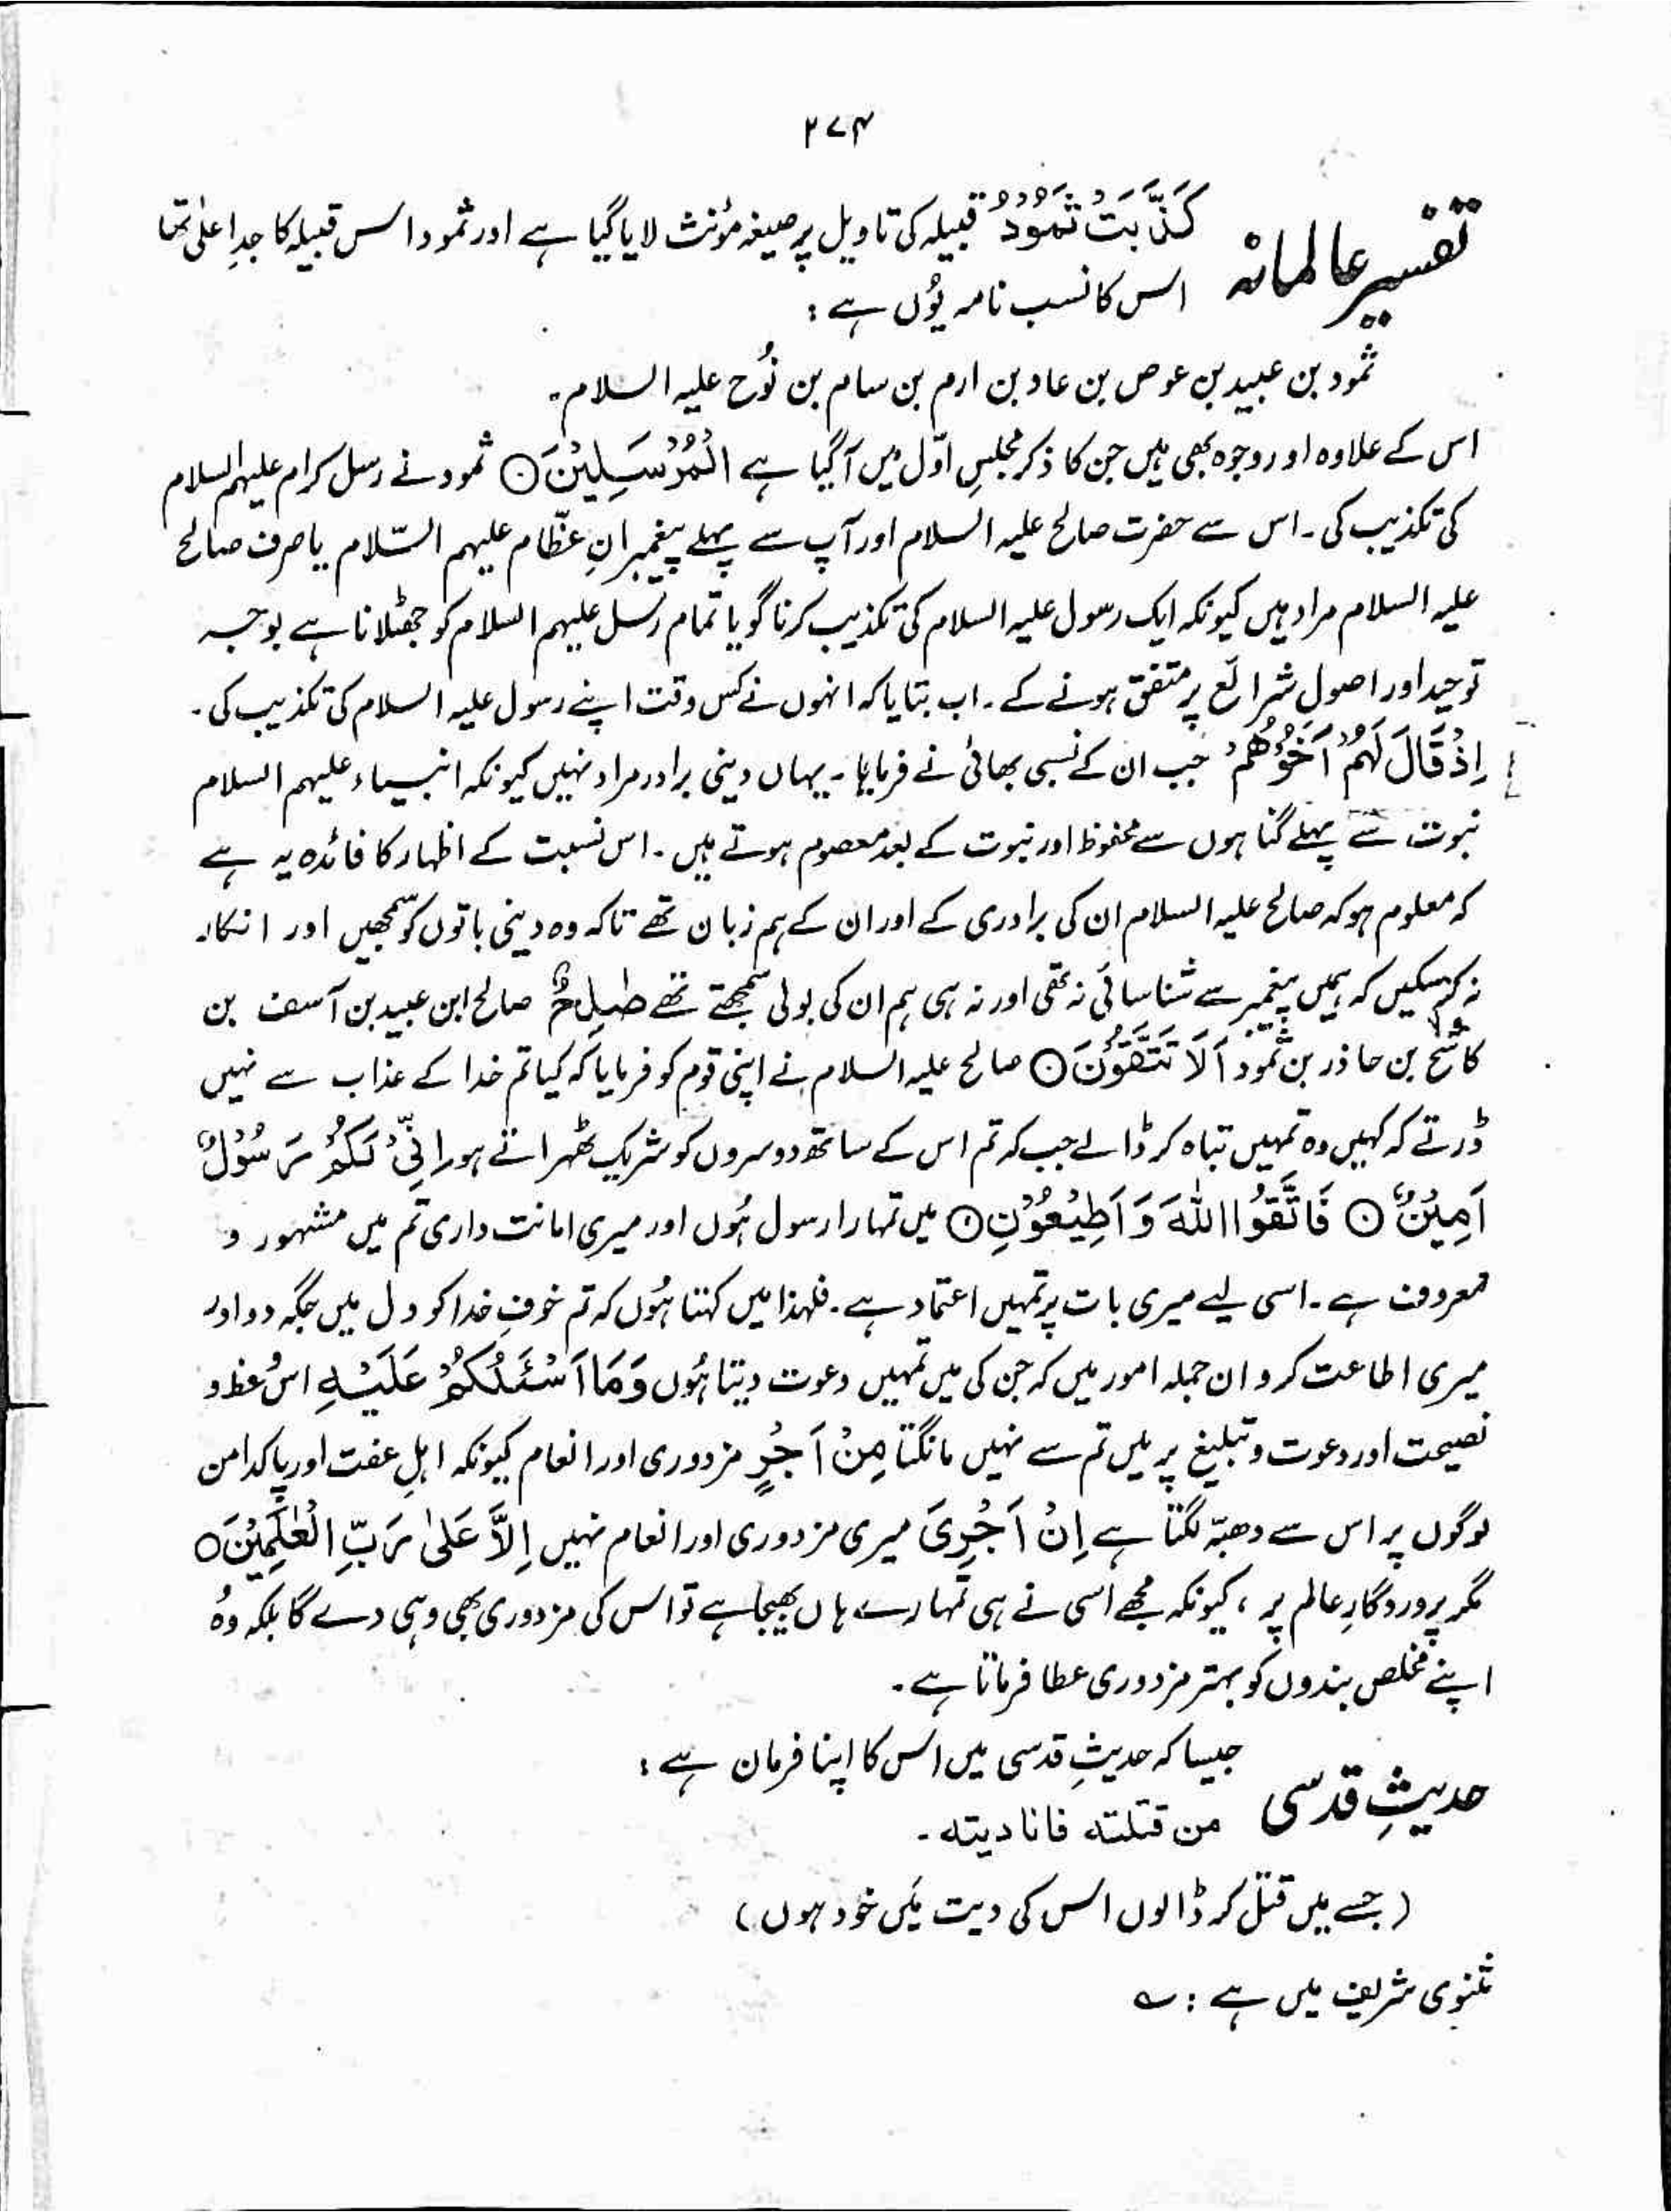 ۲۷۴
تفسیر عالمانہ
كَذَّبَتْ ثَمُوْدُ قبیلہ کی تاویل پر صیغہ مؤنث لایا گیا ہے اور ثمود اس قبیلہ کا جدِ اعلیٰ تھا
اس کا نسب نامہ یُوں ہے :
ثمود بن عبید بن عوص بن عاد بن ارم بن سام بن نُوح علیہ السلام۔
اس کے علاوہ اور وجوہ بھی ہیں جن کا ذکر مجلسِ اوّل میں آگیا ہے الْمُرْسَلِيْنَ○ ثمود نے رسل کرام علیہم السلام
کی تکذیب کی۔ اس سے حضرت صالح علیہ السلام اور آپ سے پہلے پیغمبرانِ عظّام علیہم السّلام یا صرف صالح
علیہ السلام مراد ہیں کیونکہ ایک رسول علیہ السلام کی تکذیب کرنا گویا تمام رسل علیہم السلام کو جھٹلانا ہے بوجہ
توحید اور اصول شرائع پر متفق ہونے کے۔ اب بتایا کہ انہوں نے کس وقت اپنے رسول علیہ السلام کی تکذیب کی۔
اِذْ قَالَ لَهُمْ اَخُوْهُمْ جب ان کے نسبی بھائی نے فرمایا۔ یہاں دینی برادر مراد نہیں کیونکہ انبیاء علیہم السلام
نبوت سے پہلے گناہوں سے محفوظ اور نبوت کے بعد معصوم ہوتے ہیں۔ اس نسبت کے اظہار کا فائدہ یہ ہے
کہ معلوم ہو کہ صالح علیہ السلام ان کی برادری کے اور ان کے ہم زبان تھے تاکہ وہ دینی باتوں کو سمجھیں اور انکار
نہ کرسکیں کہ ہمیں پیغمبر سے شناسائی نہ تھی اور نہ ہی ہم ان کی بولی سمجھتے تھے صٰلِحٌ صالح ابن عبید بن آسف بن
کاشح بن حاذر بن ثمود اَلَا تَتَّقُوْنَ○ صالح علیہ السلام نے اپنی قوم کو فرمایا کہ کیا تم خدا کے عذاب سے نہیں
ڈرتے کہ کہیں وہ تمہیں تباہ کر ڈالے جب کہ تم اس کے ساتھ دوسروں کو شریک ٹھہراتے ہو اِنِّيْ لَكُمْ رَسُوْلٌ
اَمِيْنٌ ○ فَاتَّقُوا اللّٰهَ وَ اَطِيْعُوْنِ○ میں تمہارا رسول ہُوں اور میری امانت داری تم میں مشہور و
معروف ہے۔ اسی لیے میری بات پر تمہیں اعتماد ہے۔ فلہذا میں کہتا ہُوں کہ تم خوفِ خدا کو دل میں جگہ دو اور
میری اطاعت کرو ان جملہ امور میں کہ جن کی میں تمہیں دعوت دیتا ہُوں وَ مَا اَسْئَلُكُمْ عَلَيْهِ اس وعظ و
نصیحت اور دعوت و تبلیغ پر میں تم سے نہیں مانگتا مِنْ اَجْرٍ مزدوری اور انعام کیونکہ اہلِ عفت اور پاکدامن
لوگوں پر اس سے دھبّہ لگتا ہے اِنْ اَجْرِيَ میری مزدوری اور انعام نہیں اِلَّا عَلٰى رَبِّ الْعٰلَمِيْنَ○
مگر پروردگارِ عالم پر ، کیونکہ مجھے اسی نے ہی تمہارے ہاں بھیجا ہے تو اس کی مزدوری بھی وہی دے گا بلکہ وہُ
اپنے مخلص بندوں کو بہتر مزدوری عطا فرماتا ہے۔
حدیثِ قدسی
جیسا کہ حدیثِ قدسی میں اس کا اپنا فرمان ہے :
من قتلته فانا ديته۔
(جسے میں قتل کر ڈالوں اس کی دیت مَیں خود ہوں)
مثنوی شریف میں ہے : ؎